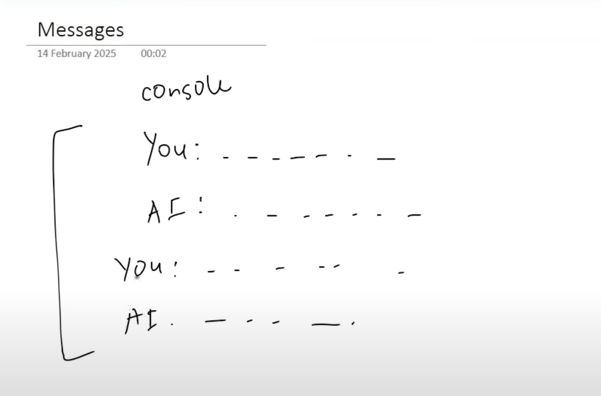 Messages
14 February 2025 00:02
console
You: . - - - - . -
AI: . - - - - - - -
You: - - - - - -
AI. - - - - .